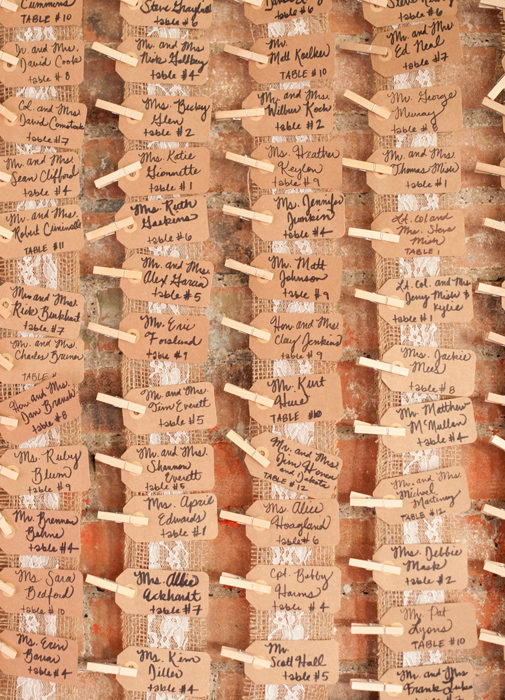 Cummons
TABLE # 8
Mr. and Mrs.
David Cook
table # 8
Col. and Mrs.
David Comstock
table #7
Mr. and Mrs.
Sean Clifford
table #4
Mr. and Mrs.
Robert
TABLE #11
Mr. and Mrs.
Rick Burkhart
table #7
Mr. and Mrs.
Charles
TABLE #
Hon. and Mrs.
Dan Branch
table # 8
Ms. Ruby
Blum
table #9
Ms. Brennan
Behne
table #4
Ms. Sara
Bedford
table # 10
Ms. Erin
table #4
Steve
table #6
Mr. and Mrs.
Nick
table #4
Mrs. Becky
Glen
table #2
Ms. Katie
Gionnette
table #1
Mrs. Ruth
Gaskins
table #6
Mr. and Mrs.
Alex Garcia
table #5
Mr. Eric
Forslund
table #9
Mr. and Mrs.
Tim Everett
table #5
Mr. and Mrs.
Shannon
Everett
table #5
Ms. April
Edwards
table #1
Mrs. Allie
Eckhardt
table #7
Ms. Kem
Diller
table #4
TABLE # 6
Mr.
Matt Koelker
TABLE #10
Mr. and Mrs.
Wilbur Koch
table #2
Ms. Heather
Keylon
table #9
Ms. Jennifer
Junken
table #4
Mr. Matt
Johnson
table #9
Hon. and Mrs.
Clay Jenkins
table #9
Mr. Kurt
TABLE #10
Mr. and Mrs.
Jim Horan
and Dakota
TABLE #12
Ms. Alice
Hoagland
table #6
Cpt. Bobby
Harms
table #4
Mr.
Scott Hall
table #5
Steve
table #6
Mr. and Mrs.
Ed Neal
table #7
Mr. George
Murray
table # 8
Mr. and Mrs.
Thomas
table #1
Lt. Col. and
Mrs.
TABLE 1
Lt. Col. and Mrs.
Jerry Mish &
Kylie
table #1
Mrs. Jackie
Meer
table # 8
Mr. Matthew
McMullen
table #4
Mr. and Mrs.
Michael
Martinez
TABLE #12
Ms. Debbie
Mask
table #2
Ms. Pat
Lyons
TABLE #10
Mr. and Mrs.
Frank